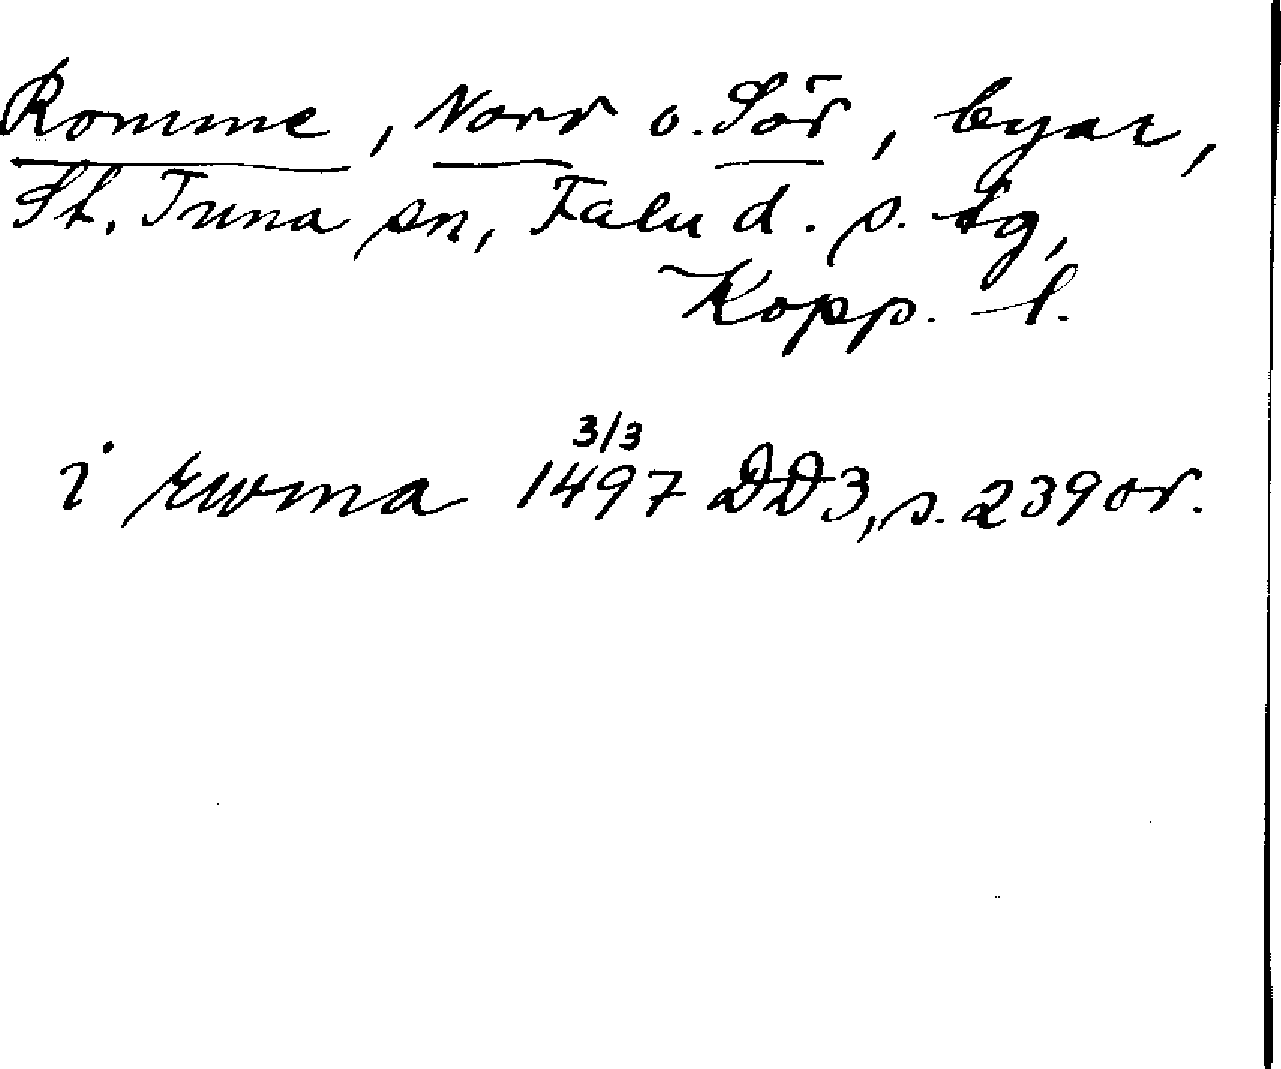 Romme, Norr o. Sör, byar,
St. Tuna sn, Falu d. s. tg,
Kopp. l.
i rwma 3/3 1497 DD3, s. 239 or.